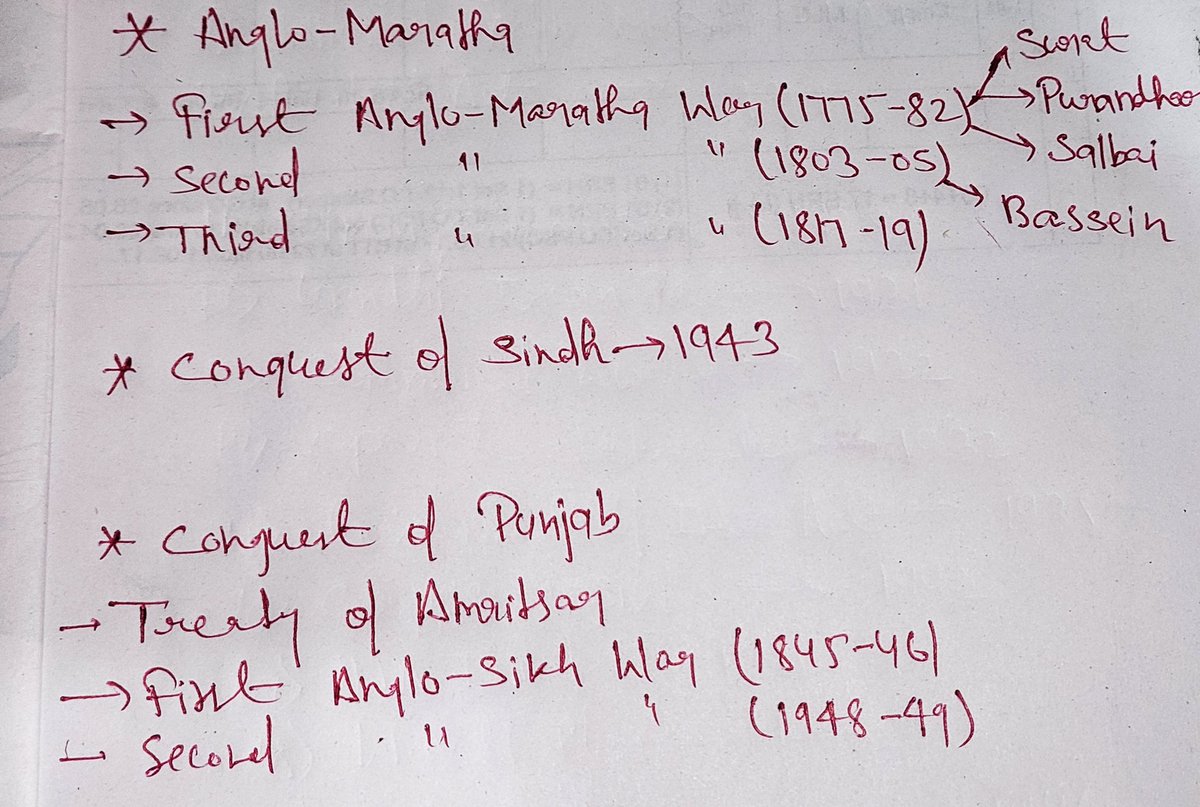 * Anglo-Maratha
→ First Anglo-Maratha War (1775-82) → Surat
→ Purandhar
→ Salbai
→ Second " " (1803-05) → Bassein
→ Third " " (1817-19)
* Conquest of Sindh → 1943
* Conquest of Punjab
→ Treaty of Amritsar
→ First Anglo-Sikh War (1845-46)
→ Second " " (1948-49)